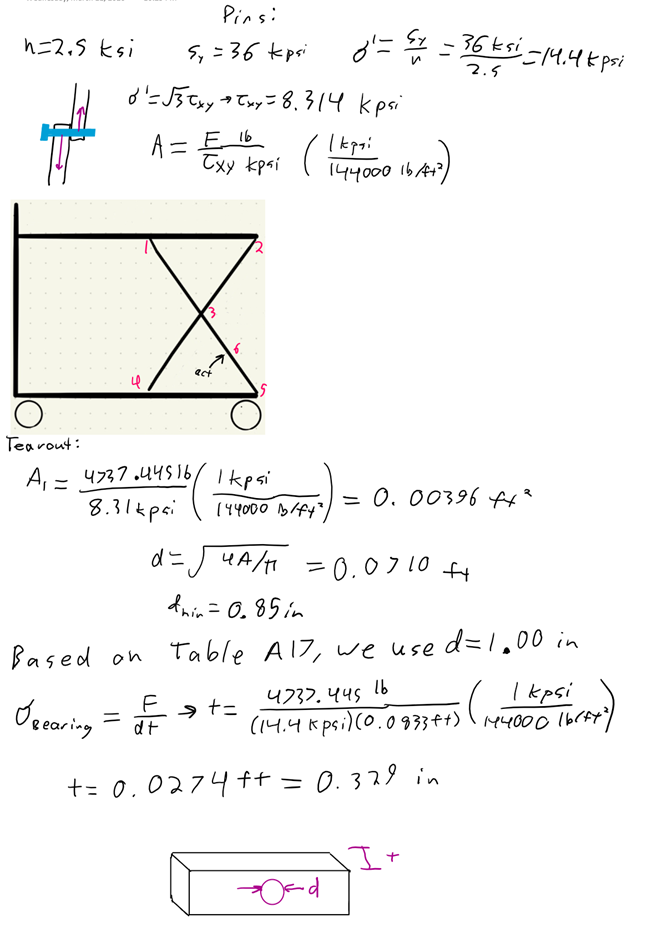 Pins:
n=2.5 ksi Sy = 36 kpsi σ' = Sy/n = 36 ksi/2.5 = 14.4 kpsi
σ' = √3 τxy → τxy = 8.314 kpsi
A = F lb/τxy kpsi (1 kpsi/144000 lb/ft²)
1 2
3
6
act
4 5
Tearout:
A1 = 4737.445 lb/8.31 kpsi (1 kpsi/144000 lb/ft²) = 0.00396 ft²
d = √4A/π = 0.0710 ft
dmin = 0.85 in
Based on Table A17, we use d=1.00 in
σBearing = F/dt → t = 4737.445 lb/(14.4 kpsi)(0.0833 ft) (1 kpsi/144000 lb/ft²)
t = 0.0274 ft = 0.329 in
t
d